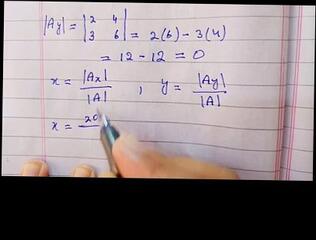 |Ay| = |2 4
3 6| = 2(6) - 3(4)
= 12 - 12 = 0
x = |Ax| / |A| , y = |Ay| / |A|
x = 20